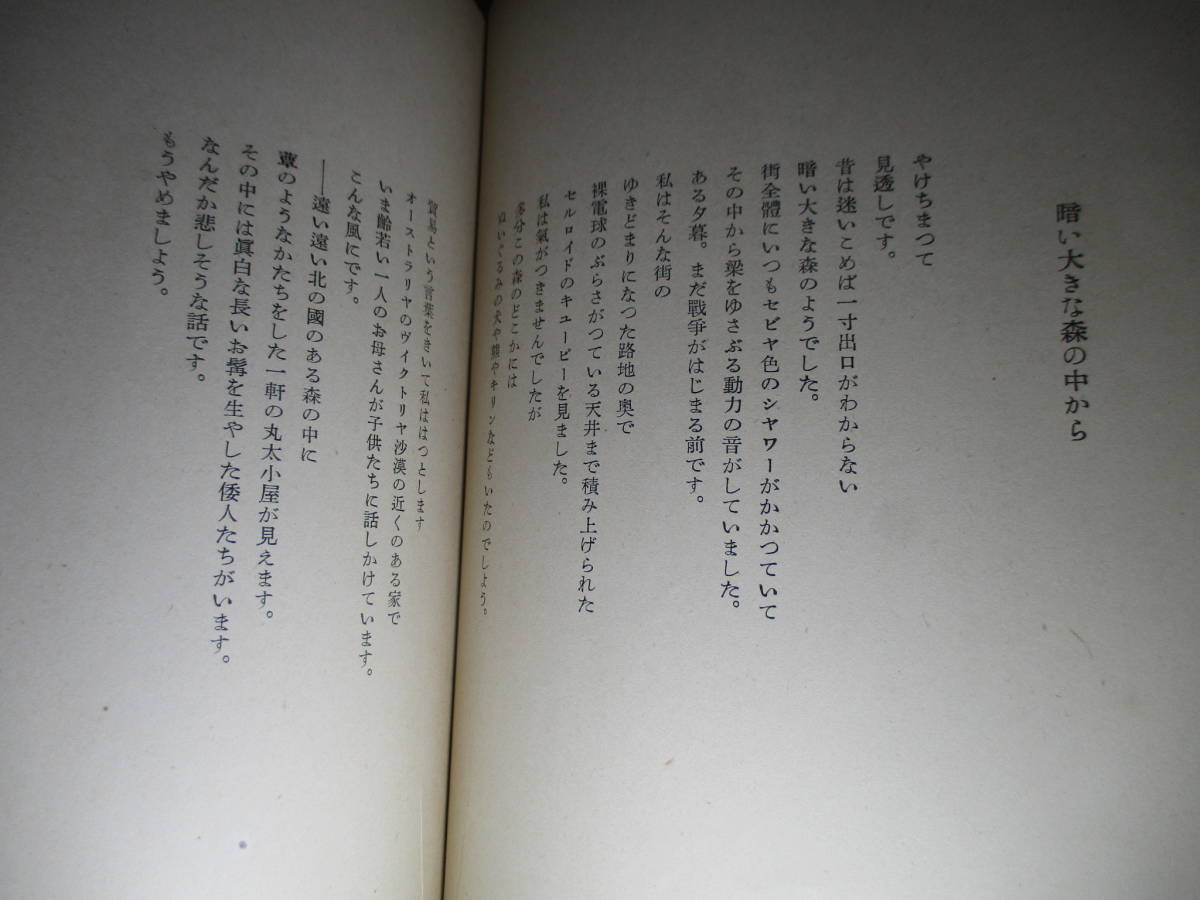 暗い大きな森の中から
やけちまつて
見透しです。
昔は迷いこめば一寸出口がわからない
暗い大きな森のようでした。
街全體にいつもセビヤ色のシヤワーがかかつていて
その中から梁をゆさぶる動力の音がしていました。
ある夕暮。まだ戰爭がはじまる前です。
私はそんな街の
ゆきどまりになつた路地の奥で
裸電球のぶらさがつている天井まで積み上げられた
セルロイドのキユーピーを見ました。
私は氣がつきませんでしたが
多分この森のどこかには
ぬいぐるみの犬や熊やキリンなどもいたのでしよう。
貿易という言葉をきいて私ははつとします
オーストラリヤのヴイクトリヤ沙漠の近くのある家で
いま齢若い一人のお母さんが子供たちに話しかけています。
こんな風にです。
――遠い遠い北の國のある森の中に
蕈のようなかたちをした一軒の丸太小屋が見えます。
その中には眞白な長いお髯を生やした倭人たちがいます。
なんだか悲しそうな話です。
もうやめましよう。